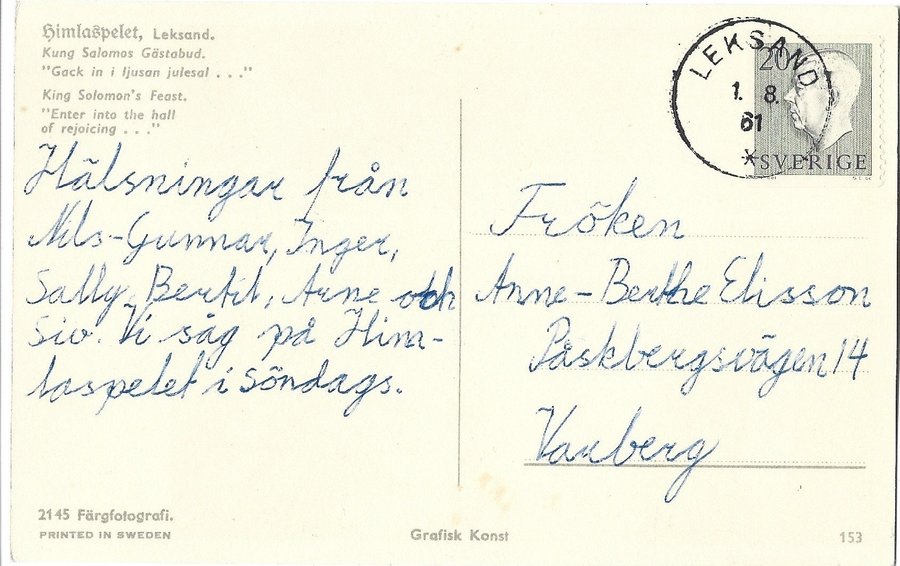 Himlaspelet, Leksand.
Kung Salomos Gästabud.
"Gack in i ljusan julesal . . ."
King Solomon's Feast.
"Enter into the hall
of rejoicing . . ."
Hälsningar från
Nils-Gunnar, Inger,
Sally, Bertil, Arne och
Siv. Vi såg på Him-
laspelet i Söndags.
2145 Färgfotografi.
PRINTED IN SWEDEN
Grafisk Konst
153
LEKSAND
1. 8.
61
20
SVERIGE
Fröken
Anne-Berthe Elisson
Påskbergsvägen 14
Varberg